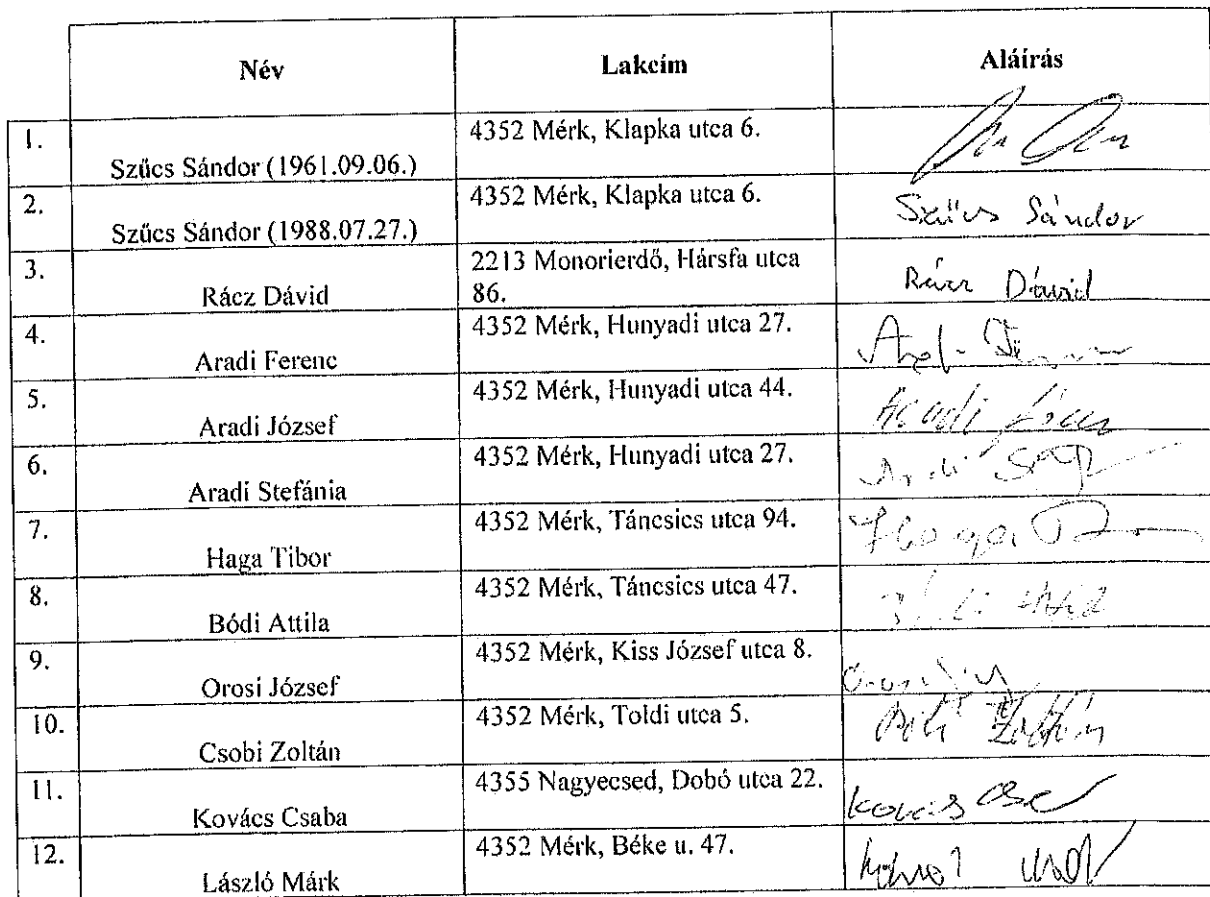 Név Lakcím Aláírás
1. Szűcs Sándor (1961.09.06.) 4352 Mérk, Klapka utca 6.
2. Szűcs Sándor (1988.07.27.) 4352 Mérk, Klapka utca 6. Szűcs Sándor
3. Rácz Dávid 2213 Monorierdő, Hársfa utca
86. Rácz Dávid
4. Aradi Ferenc 4352 Mérk, Hunyadi utca 27.
5. Aradi József 4352 Mérk, Hunyadi utca 44. Aradi József
6. Aradi Stefánia 4352 Mérk, Hunyadi utca 27.
7. Haga Tibor 4352 Mérk, Táncsics utca 94. Haga
8. Bódi Attila 4352 Mérk, Táncsics utca 47.
9. Orosi József 4352 Mérk, Kiss József utca 8.
10. Csobi Zoltán 4352 Mérk, Toldi utca 5. Zoltán
11. Kovács Csaba 4355 Nagyecsed, Dobó utca 22. Kovács
12. László Márk 4352 Mérk, Béke u. 47.